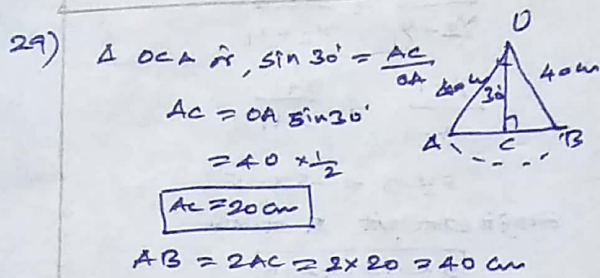 29) Δ OCA ல், sin 30° = AC/OA
AC = OA sin 30°
= 40 × 1/2
AC = 20 cm
AB = 2AC = 2×20 = 40 cm
O
40 cm 40 cm
30°
A C B